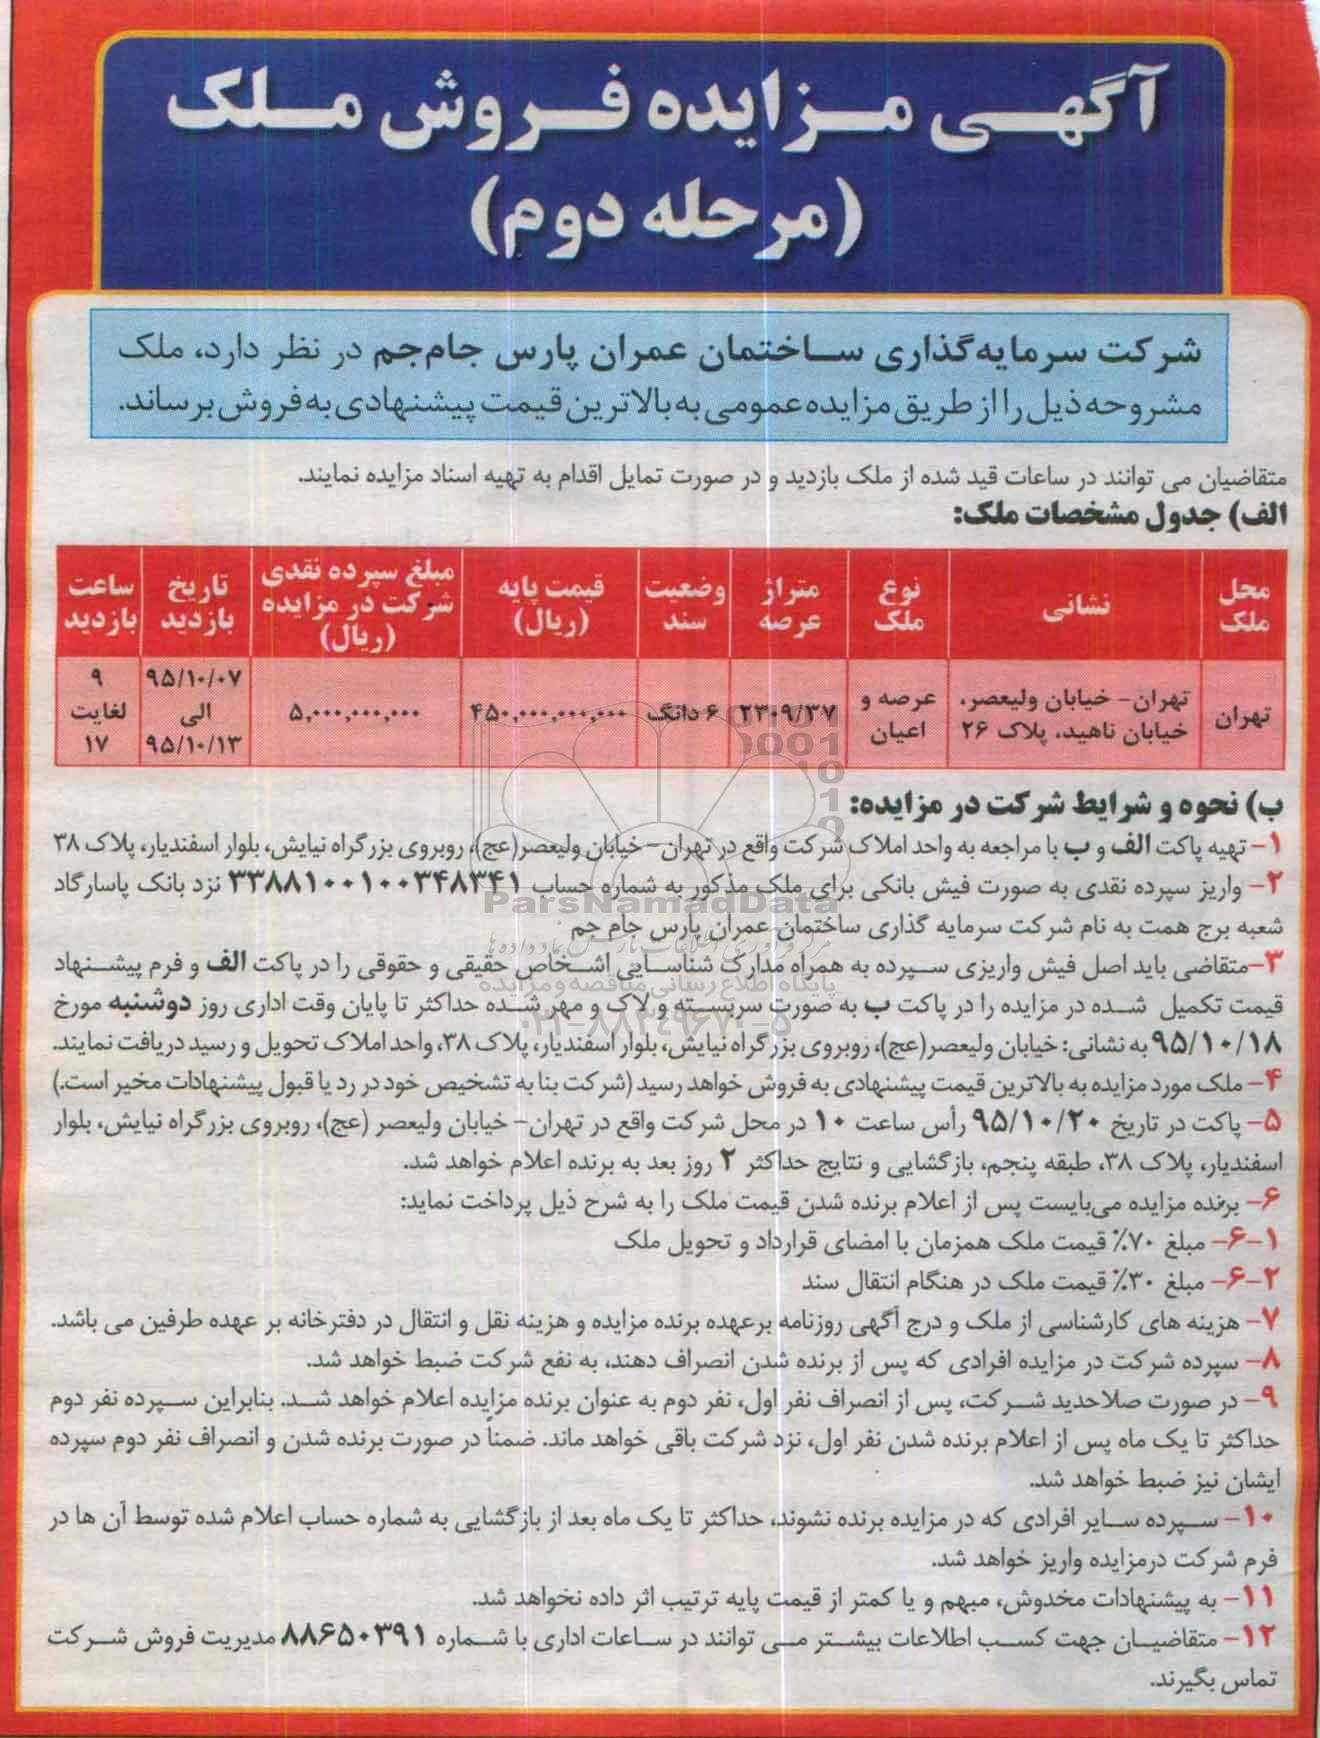 آگهی مزایده فروش ملک
(مرحله دوم)
شرکت سرمایه‌گذاری ساختمان عمران پارس جام‌جم در نظر دارد، ملک
مشروحه ذیل را از طریق مزایده عمومی به بالاترین قیمت پیشنهادی به فروش برساند.
متقاضیان می توانند در ساعات قید شده از ملک بازدید و در صورت تمایل اقدام به تهیه اسناد مزایده نمایند.
الف) جدول مشخصات ملک:
محل ملک | نشانی | نوع ملک | متراژ عرصه | وضعیت سند | قیمت پایه (ریال) | مبلغ سپرده نقدی شرکت در مزایده (ریال) | تاریخ بازدید | ساعت بازدید
تهران | تهران- خیابان ولیعصر، خیابان ناهید، پلاک ۲۶ | عرصه و اعیان | ۲۳۰۹/۳۷ | ۶ دانگ | ۴۵۰,۰۰۰,۰۰۰,۰۰۰ | ۵,۰۰۰,۰۰۰,۰۰۰ | ۹۵/۱۰/۰۷ الی ۹۵/۱۰/۱۳ | ۹ لغایت ۱۷
ب) نحوه و شرایط شرکت در مزایده:
۱- تهیه پاکت الف و ب با مراجعه به واحد املاک شرکت واقع در تهران- خیابان ولیعصر(عج)، روبروی بزرگراه نیایش، بلوار اسفندیار، پلاک ۳۸
۲- واریز سپرده نقدی به صورت فیش بانکی برای ملک مذکور به شماره حساب ۳۳۸۸۱۰۰۱۰۰۳۴۸۳۴۱ نزد بانک پاسارگاد
شعبه برج همت به نام شرکت سرمایه گذاری ساختمان عمران پارس جام جم
۳-متقاضی باید اصل فیش واریزی سپرده به همراه مدارک شناسایی اشخاص حقیقی و حقوقی را در پاکت الف و فرم پیشنهاد
قیمت تکمیل شده در مزایده را در پاکت ب به صورت سربسته و لاک و مهر شده حداکثر تا پایان وقت اداری روز دوشنبه مورخ
۹۵/۱۰/۱۸ به نشانی: خیابان ولیعصر(عج)، روبروی بزرگراه نیایش، بلوار اسفندیار، پلاک ۳۸، واحد املاک تحویل و رسید دریافت نمایند.
۴- ملک مورد مزایده به بالاترین قیمت پیشنهادی به فروش خواهد رسید (شرکت بنا به تشخیص خود در رد یا قبول پیشنهادات مخیر است.)
۵- پاکت در تاریخ ۹۵/۱۰/۲۰ رأس ساعت ۱۰ در محل شرکت واقع در تهران- خیابان ولیعصر (عج)، روبروی بزرگراه نیایش، بلوار
اسفندیار، پلاک ۳۸، طبقه پنجم، بازگشایی و نتایج حداکثر ۲ روز بعد به برنده اعلام خواهد شد.
۶- برنده مزایده می‌بایست پس از اعلام برنده شدن قیمت ملک را به شرح ذیل پرداخت نماید:
۶-۱- مبلغ ۷۰٪ قیمت ملک همزمان با امضای قرارداد و تحویل ملک
۶-۲- مبلغ ۳۰٪ قیمت ملک در هنگام انتقال سند
۷- هزینه های کارشناسی از ملک و درج آگهی روزنامه برعهده برنده مزایده و هزینه نقل و انتقال در دفترخانه بر عهده طرفین می باشد.
۸- سپرده شرکت در مزایده افرادی که پس از برنده شدن انصراف دهند، به نفع شرکت ضبط خواهد شد.
۹- در صورت صلاحدید شرکت، پس از انصراف نفر اول، نفر دوم به عنوان برنده مزایده اعلام خواهد شد. بنابراین سپرده نفر دوم
حداکثر تا یک ماه پس از اعلام برنده شدن نفر اول، نزد شرکت باقی خواهد ماند. ضمناً در صورت برنده شدن و انصراف نفر دوم سپرده
ایشان نیز ضبط خواهد شد.
۱۰- سپرده سایر افرادی که در مزایده برنده نشوند، حداکثر تا یک ماه بعد از بازگشایی به شماره حساب اعلام شده توسط آن ها در
فرم شرکت درمزایده واریز خواهد شد.
۱۱- به پیشنهادات مخدوش، مبهم و یا کمتر از قیمت پایه ترتیب اثر داده نخواهد شد.
۱۲- متقاضیان جهت کسب اطلاعات بیشتر می توانند در ساعات اداری با شماره ۸۸۶۵۰۳۹۱ مدیریت فروش شرکت
تماس بگیرند.
ParsNamadData
پایگاه اطلاع رسانی مناقصه و مزایده
۰۲۱-۸۸۳۴۹۶۷۰-۵